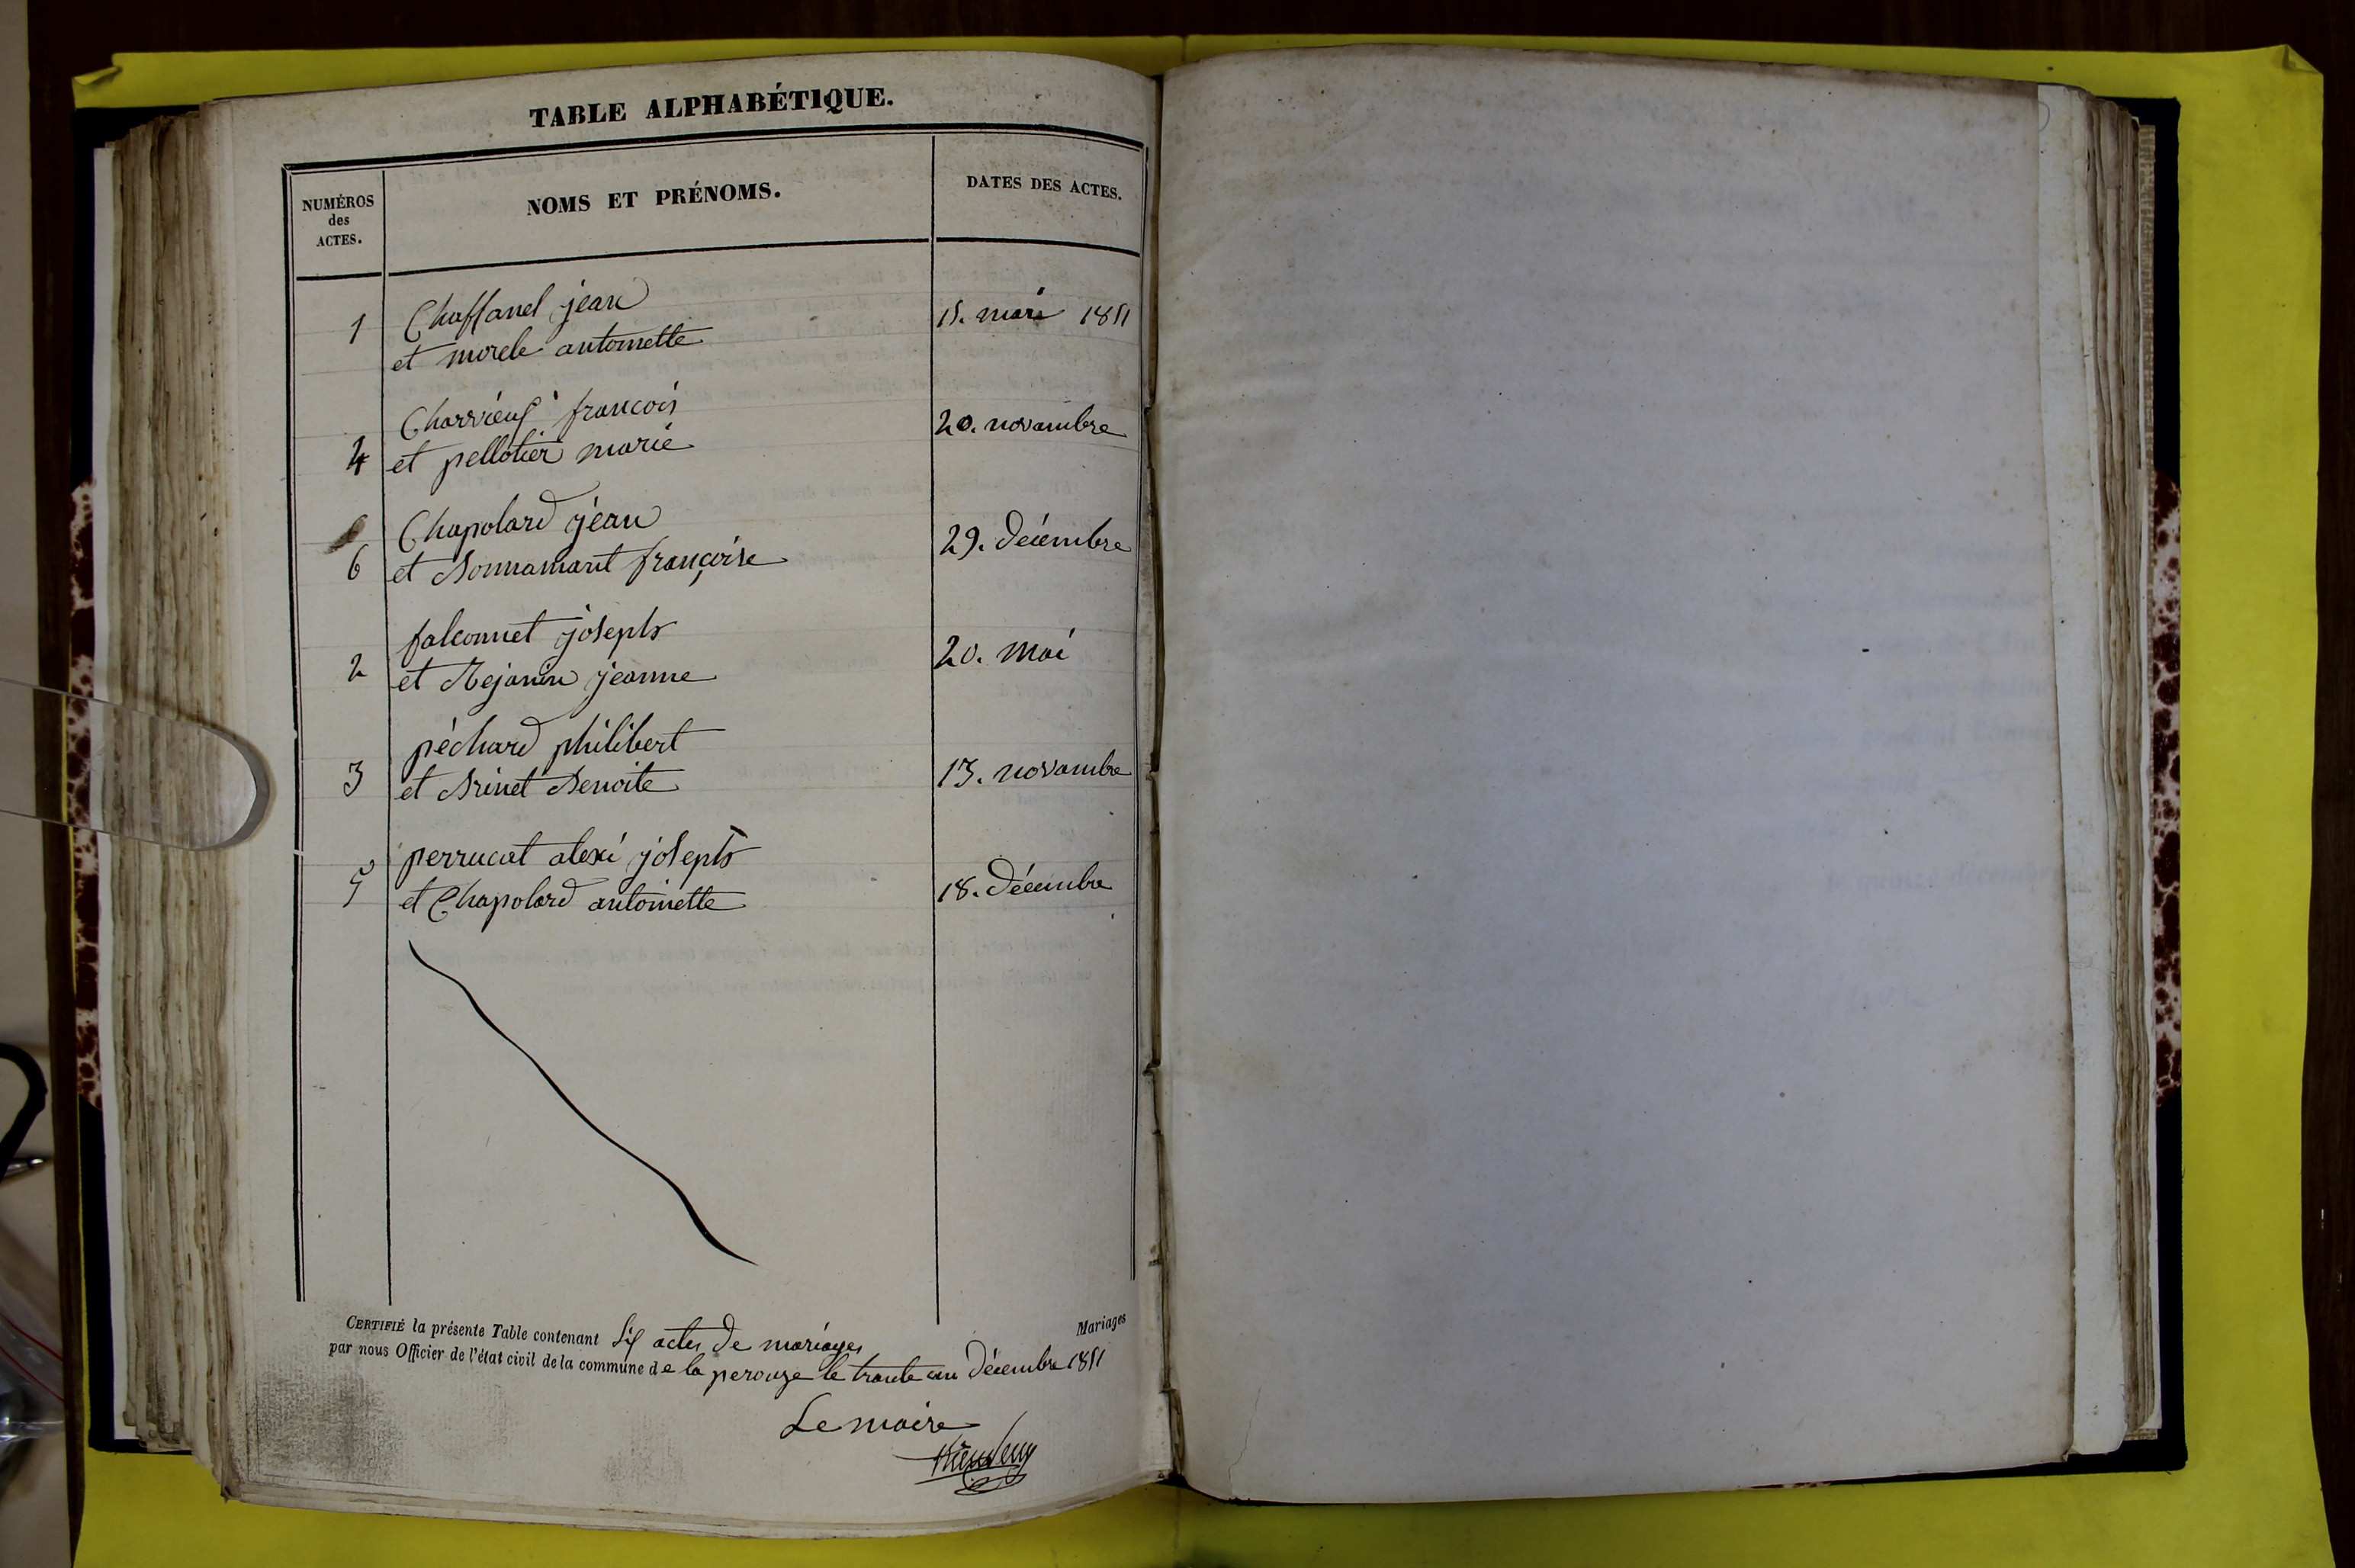 TABLE ALPHABÉTIQUE.
NUMÉROS
des
ACTES.
NOMS ET PRÉNOMS.
DATES DES ACTES.
1 Chaffanel jean
et morele antoinette
15. mars 1851
Charvieux francois
4 et pellotier marie
20. novambre
Chapolard jean
6 et Bonnamant françoise
29. décembre
falconnet joseph
2 et Rejanin jeanne
20. mai
péchard philibert
3 et Brinet Benoite
13. novambre
perrucat alexi joseph
5 et Chapolard antoinette
18. décembre
CERTIFIÉ la présente Table contenant Six actes de mariages Mariages
par nous Officier de l'état civil de la commune de la perouze le trante un décembre 1851
Le maire